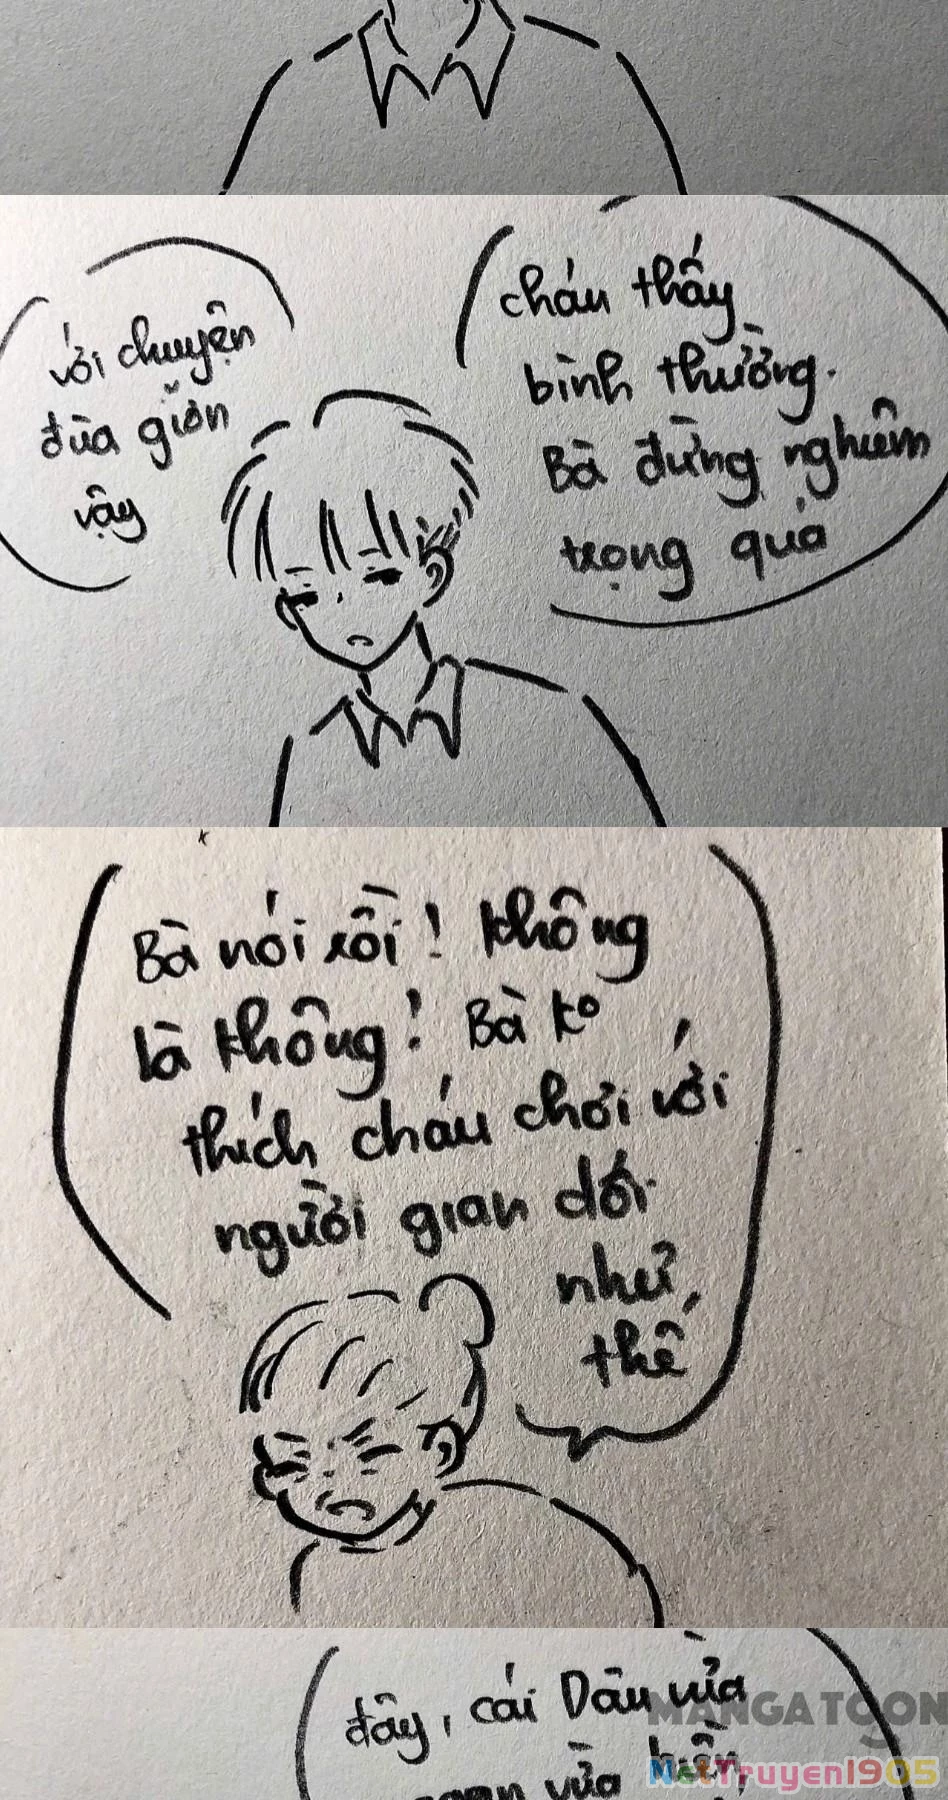 cháu thấy
bình thường.
Bà đừng nghiêm
trọng quá
với chuyện
đùa giỡn
vậy
Bà nói rồi! Không
là không! Bà ko
thích cháu chơi với
người gian dối
như
thế
đây, cái Dâu vừa
ngoan vừa hiền,
MANGATOON
NetTruyen1905